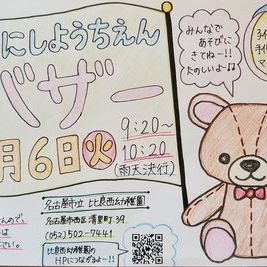 にしようちえん
バザー
月6日火
9:20〜
10:20
(雨天決行)
みんなで
あそびに
きてねー!!
たのしいよー♫
名古屋市立 比良西幼稚園
名古屋市西区清里町39
(052)502-7441
比良西幼稚園の
HPにつながるよー!!